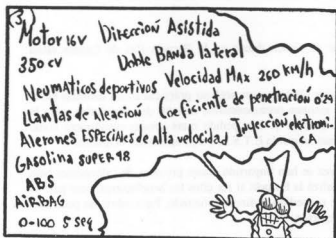 3
Motor 16v Dirección Asistida
350 cv Doble Banda lateral
Neumaticos deportivos Velocidad Max 260 Km/h
Llantas de Aleación Coeficiente de penetración 0'29
Alerones ESPECIALES de Alta velocidad Inyección electroni-
CA
Gasolina SUPER 98
ABS
AiRBAG
0-100 5 Seg